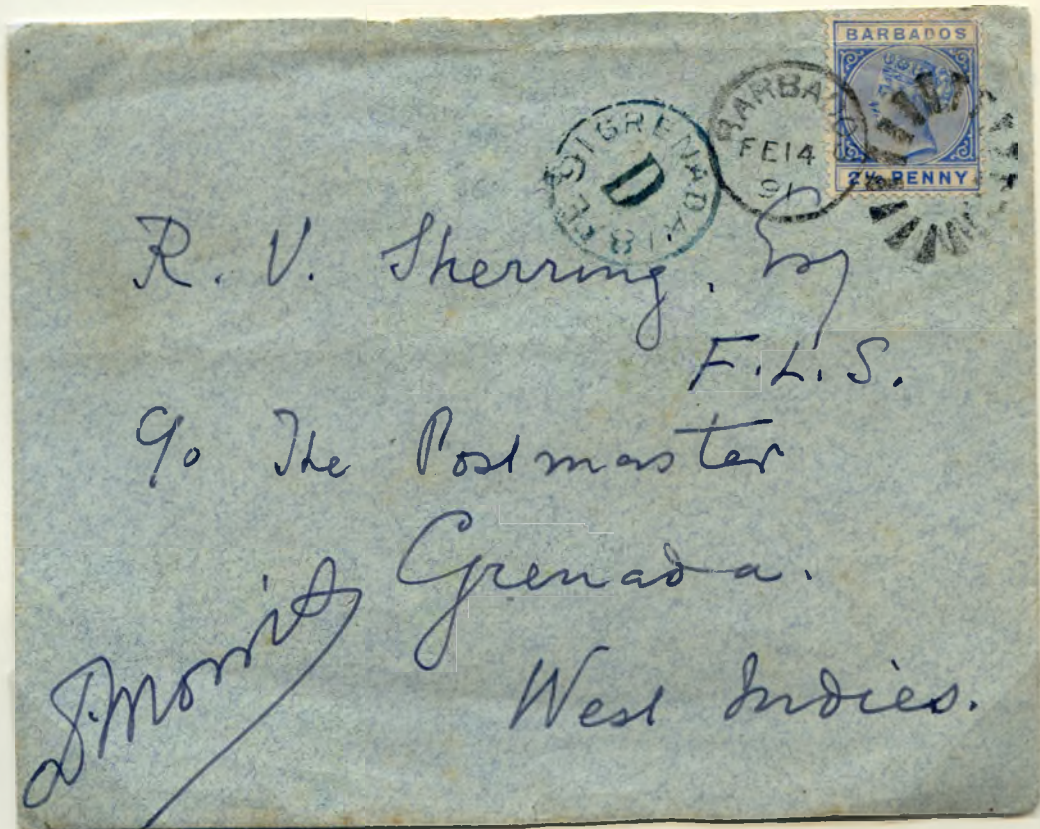 BARBADOS
2½ PENNY
BARBADOS
FE 14
91
GRENADA
D
18 FE 91
R. V. Sherring. Esq
F.L.S.
c/o The Postmaster
Grenada.
West Indies.
D. Morris